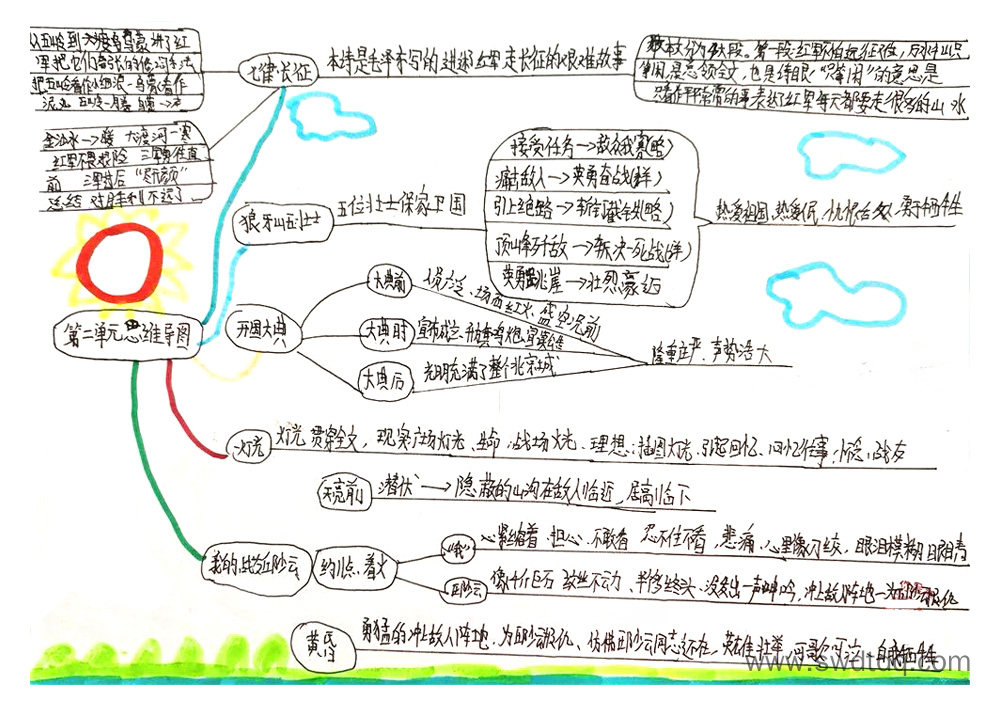 从五岭到乌蒙讲了红
军把它们
把五岭看作细浪乌蒙看作
泥丸
金沙水→暖 大渡河→寒
红军不畏艰险 三军勇往直
前 三军过后“尽开颜”
总结 对胜利不远了
七律·长征
本诗是毛泽东写的,讲述红军走长征的艰难故事
本诗分为4大段。第一段:红军不怕远征难,万水千山只
等闲,是总领全文,也是诗眼“等闲”的意思是
只看作平平常常的事表达了红军每天都要走很多的山水
狼牙山五壮士
五位壮士保家卫国
接受任务→
痛击敌人→英勇奋战
引上绝路→
顶峰歼敌→坚决死战
英勇跳崖→壮烈豪迈
热爱祖国,热爱人民,仇恨敌人,勇于牺牲
第二单元思维导图
开国大典
大典前
人员广泛、场面红火、盛况空前
大典时
大典后
光明充满了整个北京城
隆重庄严、声势浩大
灯光
灯光贯穿全文,现实广场灯光、生命:战场灯光、理想:插图灯光,引起回忆、回忆往事,怀念战友
天亮前
潜伏→隐蔽的山沟在敌人临近,居高临下
我的战友邱少云
约1点,着火
“我”
心紧缩着、担心、不敢看 忍不住不看 悲痛,心里像刀绞,眼泪模糊眼睛
邱少云
像千斤巨石 纹丝不动、没发出一声呻吟,冲上敌人阵地
黄昏
勇猛的冲上敌人阵地,为邱少云报仇、仿佛邱少云同志还在,英雄壮举 可歌可泣、自我牺牲
www.swdtdq.com